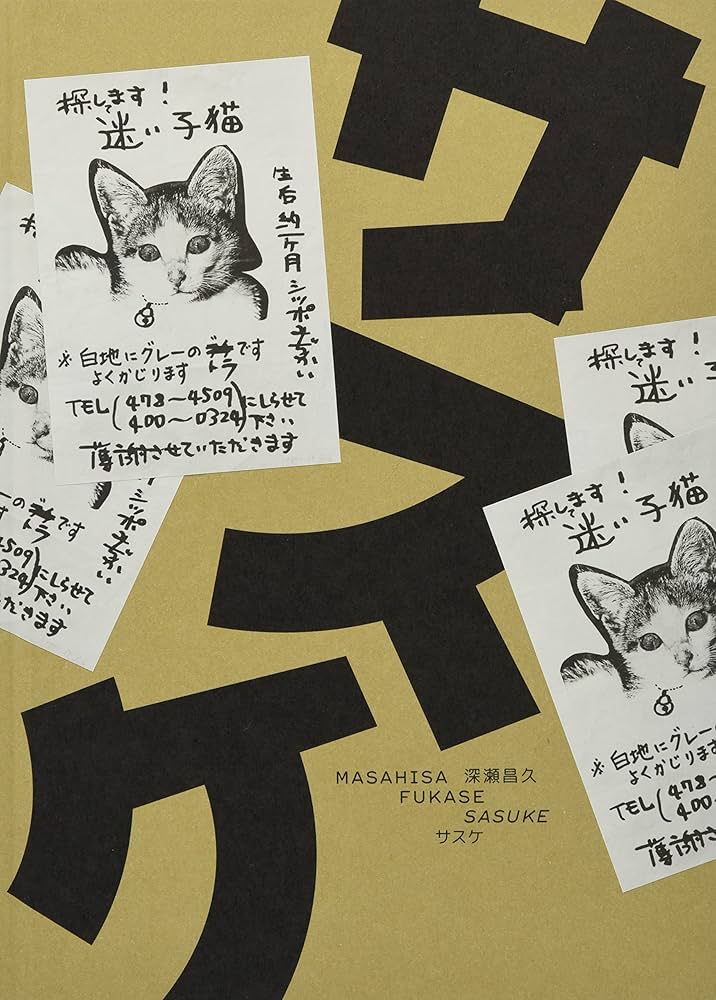 サスケ
探してます!
迷い子猫
生后約一ヶ月シッポ
※白地にグレーのトラです
よくかじります
TEL(478〜4509)にしらせて
400〜0324 下さい
薄謝させていただきます
探
シッポ
ーのトラです
4509)にしらせて
0324 下さい
だきます
探してます!
迷い子
探してます!
迷い子猫
※白地にグレー
よくかじります
TEL(478〜
400〜
薄謝さ
MASAHISA 深瀬昌久
FUKASE
SASUKE
サスケ